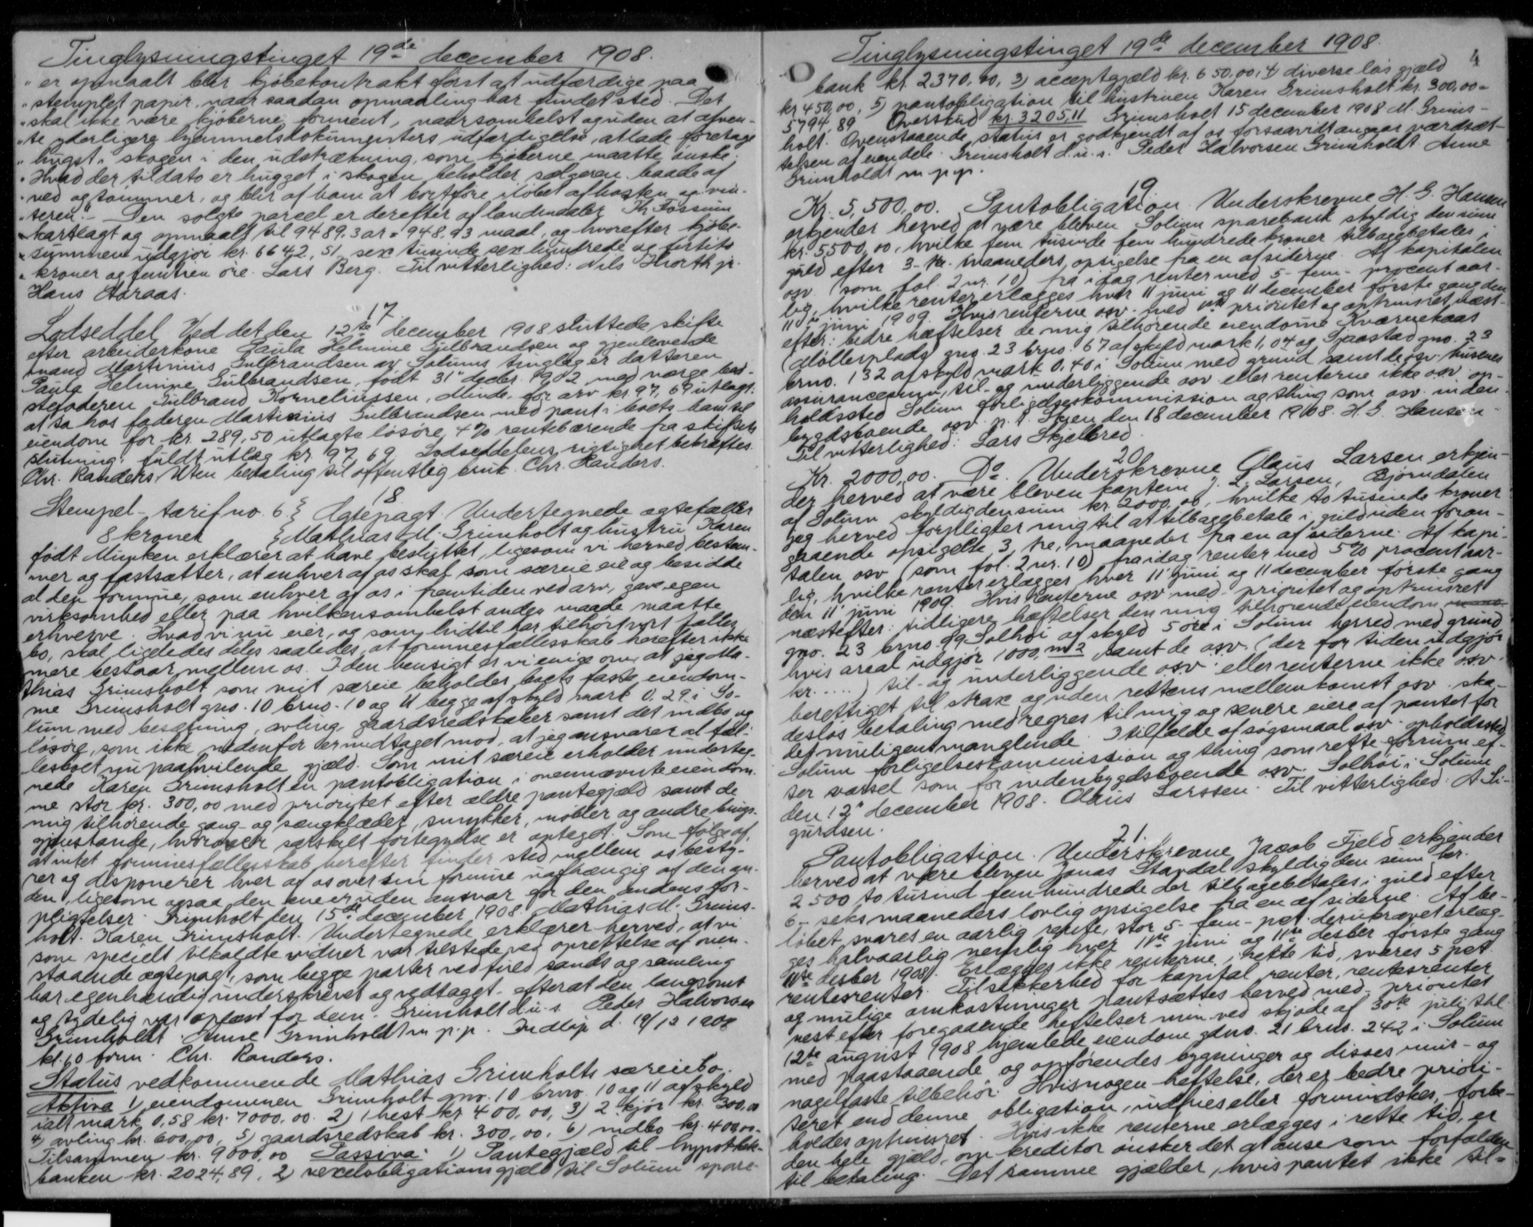 Tinglysningstinget 19de december 1908.
" er opmaalt blir kjøbekontrakt först at udfærdige paa
" stemplet papir, naar saadan opmaaling har fundet sted. Det
" skal ikke være kjøberne forment, naarsomhelst og uden at afven-
" te yderligere hjemmelsdokumenters udfærdigelse, at lade foretage
" hugst i skogen i den udstrækning, som kjøberne maatte önske.
" Hvad der til dato er hugget i skogen beholder sælgeren baade af
" ved og tømmer, og blir af ham at bortføre i löbet af hösten og vin-
" teren". Den solgte parcel er derefter af landmaaler Kr. Fossum
" kartlagt og opmaalt til 9489,3 ar = 948.93 maal, og hvorefter kjøbe-
" summen udgjør kr. 6642,51, sex tusinde sex hundrede og firtito
" kroner og femtien øre. Lars Berg. Til vitterlighed: Nils Hiorth jr.
Hans Aaraas.
17
Lodseddel Ved det den 12te december 1908 sluttede skifte
efter arbeiderkone Paula Helmine Gulbrandsen og gjenlevende
mand Martinius Gulbrandsen av Solums tinglag er datteren
Paula Helmine Gulbrandsen, født 31 decbr. 1902, med værge bed-
stefaderen Gulbrand Korneliussen, Minde, for arv kr. 97,69 utlagt
at ta hos faderen Martinius Gulbrandsen med pant i boets ham til
eiendom for kr. 289,50 utlagte lösöre, 4% rentebærende fra skiftets
slutning: fuldt utlæg kr. 97,69. Lodseddelens rigtighet bekræftes
Chr. Randers. Uten betaling til offentlig bruk. Chr. Randers.
18
Stempel-tarif no. 6 } Ægtepagt. Undertegnede ægtefæller
8 kroner } Mathias M. Grimholt og hustru Karen
født Munken erklærer at have besluttet, ligesom vi herved bestem-
mer og fastsætter, at enhver af os skal som særeie eie og besidde
al den formue, som enhver af os i fremtiden ved arv, gave egen
virksomhed eller paa hvilkensomhelst anden maade maatte
erhverve. Hvad vi nu eier, og som hidtil har tilhørt vort fælles
bo, skal ligeledes deles saaledes, at formuesfællesskab herefter ikke
mere bestaar mellem os. I den hensigt er vi enige om, at jeg Ma-
thias Grimsholt som mit særeie beholder boets faste eiendom-
me Grimsholt gno. 10 brno. 10 og 11 begge af skyld mark 0.29 i So-
lum med besætning, avling gaardsredskaber samt det indbo og
lösöre, som ikke nedenfor er undtaget mod, at jeg ansvarer al fæl-
lesboet nu paahvilende gjæld. Som mit særeie erholder underteg-
nede Karen Grimsholt en pantobligation i ovennævnte eiendom-
me stor kr. 300,00 med prioritet efter ældre pantegjæld samt de
mig tilhørende gang- og sengklæder, smykker, møbler og andre brugs-
gjenstande, hvorover særskilt fortegnelse er optaget. Som følge af,
at intet formuesfællesskab herefter finder sted mellem os besty-
rer og disponerer hver af os over sin formue uafhængig af den an-
den, ligesom ogsaa den ene er uden ansvar for den andens for-
pligtelser. Grimholt den 15de december 1908. Mathias M. Grims-
holt. Karen Grimsholt. Undertegnede erklærer herved, at vi
som specielt tilkaldte vidner var tilstede ved oprettelse af oven-
staaende ægtepagt, som begge parter ved fuld sands og samling
har egenhændig underskrevet og vedtaget, efterat den langsomt
og tydelig var oplæst for dem. Grimholt d.u.s. Peder Halvorsen
Grimholdt. Anne Grimholdt m.p.p. Indløp d. 19/12 1908
kl. 10 form. Chr. Randers.
Status vedkommende Mathias Grimholts særeiebo.
Aktiva 1) eiendommen Grimholt gno. 10 brno. 10 og 11 af skyld
ialt mark 0,58 kr. 7000,00. 2) 1 hest kr. 400,00, 3) 2 kjør kr. 300,00
4) avling kr. 600,00, 5) gaardsredskab kr. 300,00. 6) indbo kr. 400,00-
Tilsammen kr. 9000,00 Passiva: 1) Pantegjæld til hypothek-
banken kr. 2024,89, 2) vexelobligationsgjæld til Solum spare-
Tinglysningstinget 19de december 1908.
4
bank kr. 2370,00, 3) acceptgjæld kr. 650,00, 4) diverse løs gjæld
kr. 450,00, 5) pantobligation til hustruen Karen Grimsholt kr. 300,00 =
5794,89 Overskud kr. 3205,11 Grimsholt 15 december 1908 M. Grims-
holt. Ovenstaaende status er godkjendt af os forsaavidt angaar værdsæt-
telsen af eiendele. Grimsholt d.u.s. Peder Halvorsen Grimholdt Anne
Grimholdt m.p.p.
19
Kr. 5,500,00. Pantobligation. Underskrevne H. G. Hansen
erkjender herved at være bleven Solum sparebank skyldig den sum
kr. 5500,00, hvilke fem tusinde fem hundrede kroner tilbagebetales i
guld efter 3 - tre - maaneders opsigelse fra en af siderne. Af kapitalen
osv (som fol. 2 nr. 10) fra i dag renter med 5 - fem - procent aar-
lig, hvilke renter erlægges hver 11 juni og 11 december første gang den
11te juni 1909. Hvis renterne osv. med prioritet og optrinsret næst-
efter: bedre hæftelser de mig tilhørende eiendome Kværnekaas
(Möllerplads) gno. 23 brno. 67 af skyld mark 1,04 og Graastad gno. 23
brno. 132 af skyld mark 0.40 i Solum med grund samt de osv, husenes
assurancesum, til- og underliggende osv eller renterne ikke osv, op-
holdssted Solum forligelseskommission og thing som osv. inden-
bygdsboende osv. p. t. Skien den 18 december 1908. H. G. Hansen -
Til vitterlighed: Lars Skjelbred.
20
Kr. 2000,00. Do. Underskrevne Olaus Larsen erkjen-
der herved at være bleven kaptein J. L. Larsen, Bjørndalen
af Solum skyldig den sum kr. 2000,00, hvilke to tusinde kroner
jeg herved forpligter mig til at tilbagebetale i guld uden foran-
gaaende opsigelse 3, tre, maaneder fra en af siderne. Af kapi-
talen osv (som fol. 2 nr. 10) fra idag renter med 5% procent aar-
lig, hvilke renter erlægges hver 11 juni og 11 december første gang
den 11' juni 1909. Hvis renterne osv med prioritet og optrinsret
næstefter: tidligere hæftelser den mig tilhørende eiendom
gno. 23 brno. 99 Solhöi af skyld 5 öre i Solum herred med grund
hvis areal udgjør 1000 m2 samt de osv, (der for tiden udgjør
kr. .....) til- og underliggende osv. eller renterne ikke osv.
berettiget til strax og uden rettens mellemkomst osv. ska-
deslös betaling med regres til mig og senere eiere af pantet for
det muligens manglende. I tilfælde af søgsmaal osv. opholdssted
Solum forligelseskommission og thing som rette forum ef-
ter varsel som for indenbygdsboende osv. Solhöi i Solum
den 12' december 1908. Olaus Larssen. Til vitterlighed: A. Si-
gurdsen.
21.
Pantobligation. Underskrevne Jacob Fjeld erkjender
herved at være bleven Jonas Stavdal skyldig den sum kr.
2500 to tusind fem hundrede der tilbagebetales i guld efter
6 - seks maaneders lovlig opsigelse fra en af siderne. Af be-
løbet svares en aarlig rente, stor 5 - fem - pct. derunpraavet erlæg-
ges halvaarlig nemlig hver 11te juni og 11te decber første gang
11te decber 1908. Erlægges ikke renterne i rette tid, svares 5 pct
rentesrenter. Til sikkerhed for kapital, renter, rentesrenter
og mulige omkostninger pantsættes herved med prioritet
næst efter foregaaende heftelser min ved skjøde af 30te juli thl.
12te august 1908 hjemlede eiendom gdno. 21 brno. 242 i Solum
med paastaaende og opførendes bygninger og disses mur- og
nagelfaste tilbehör. Hvis nogen heftelse, der er bedre priori-
teret end denne obligation, indfries eller formindskes, forbe-
holdes optrinsret. Hvis ikke renterne erlægges i rette tid, er
den hele gjæld, om kreditor ønsker det at anse som forfalden
til betaling. Det samme gjælder, hvis pantet ikke til-